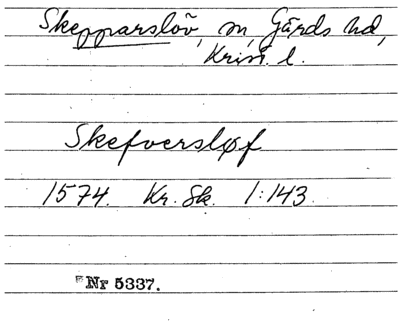 Skepparslöv, sn, Gärds hd,
Krist. l.
Skefversløf
1574. Kr. Sk. 1:143.
Nr 5337.